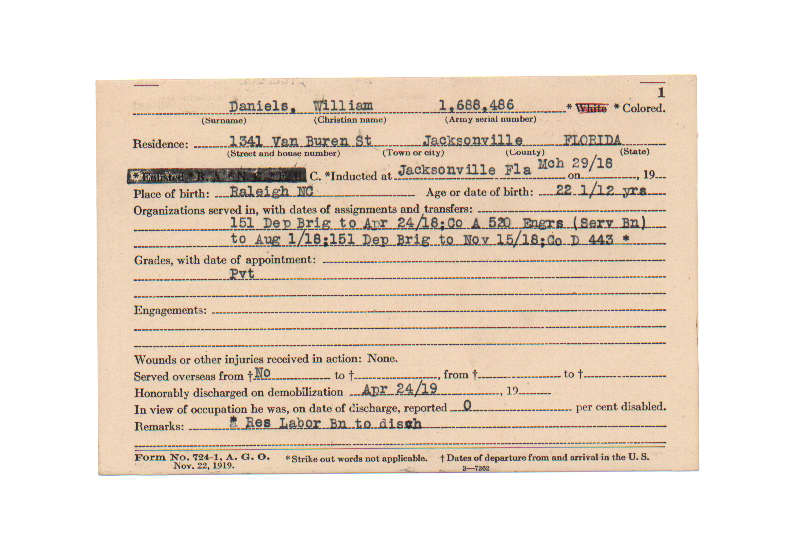 1
Daniels, William 1,688,486 * White * Colored.
(Surname) (Christian name) (Army serial number)
Residence: 1341 Van Buren St Jacksonville FLORIDA
(Street and house number) (Town or city) (County) (State)
C. *Inducted at Jacksonville Fla Mch 29/18 on , 19
Place of birth: Raleigh NC Age or date of birth: 22 1/12 yrs
Organizations served in, with dates of assignments and transfers:
151 Dep Brig to Apr 24/18;Co A 520 Engrs (Serv Bn)
to Aug 1/18;151 Dep Brig to Nov 15/18;Co D 443 *
Grades, with date of appointment:
Pvt
Engagements:
Wounds or other injuries received in action: None.
Served overseas from †No to †, from † to †
Honorably discharged on demobilization Apr 24/19, 19
In view of occupation he was, on date of discharge, reported 0 per cent disabled.
Remarks: * Res Labor Bn to disch
Form No. 724-1, A. G. O. *Strike out words not applicable. † Dates of departure from and arrival in the U. S.
Nov. 22, 1919. 3—7362